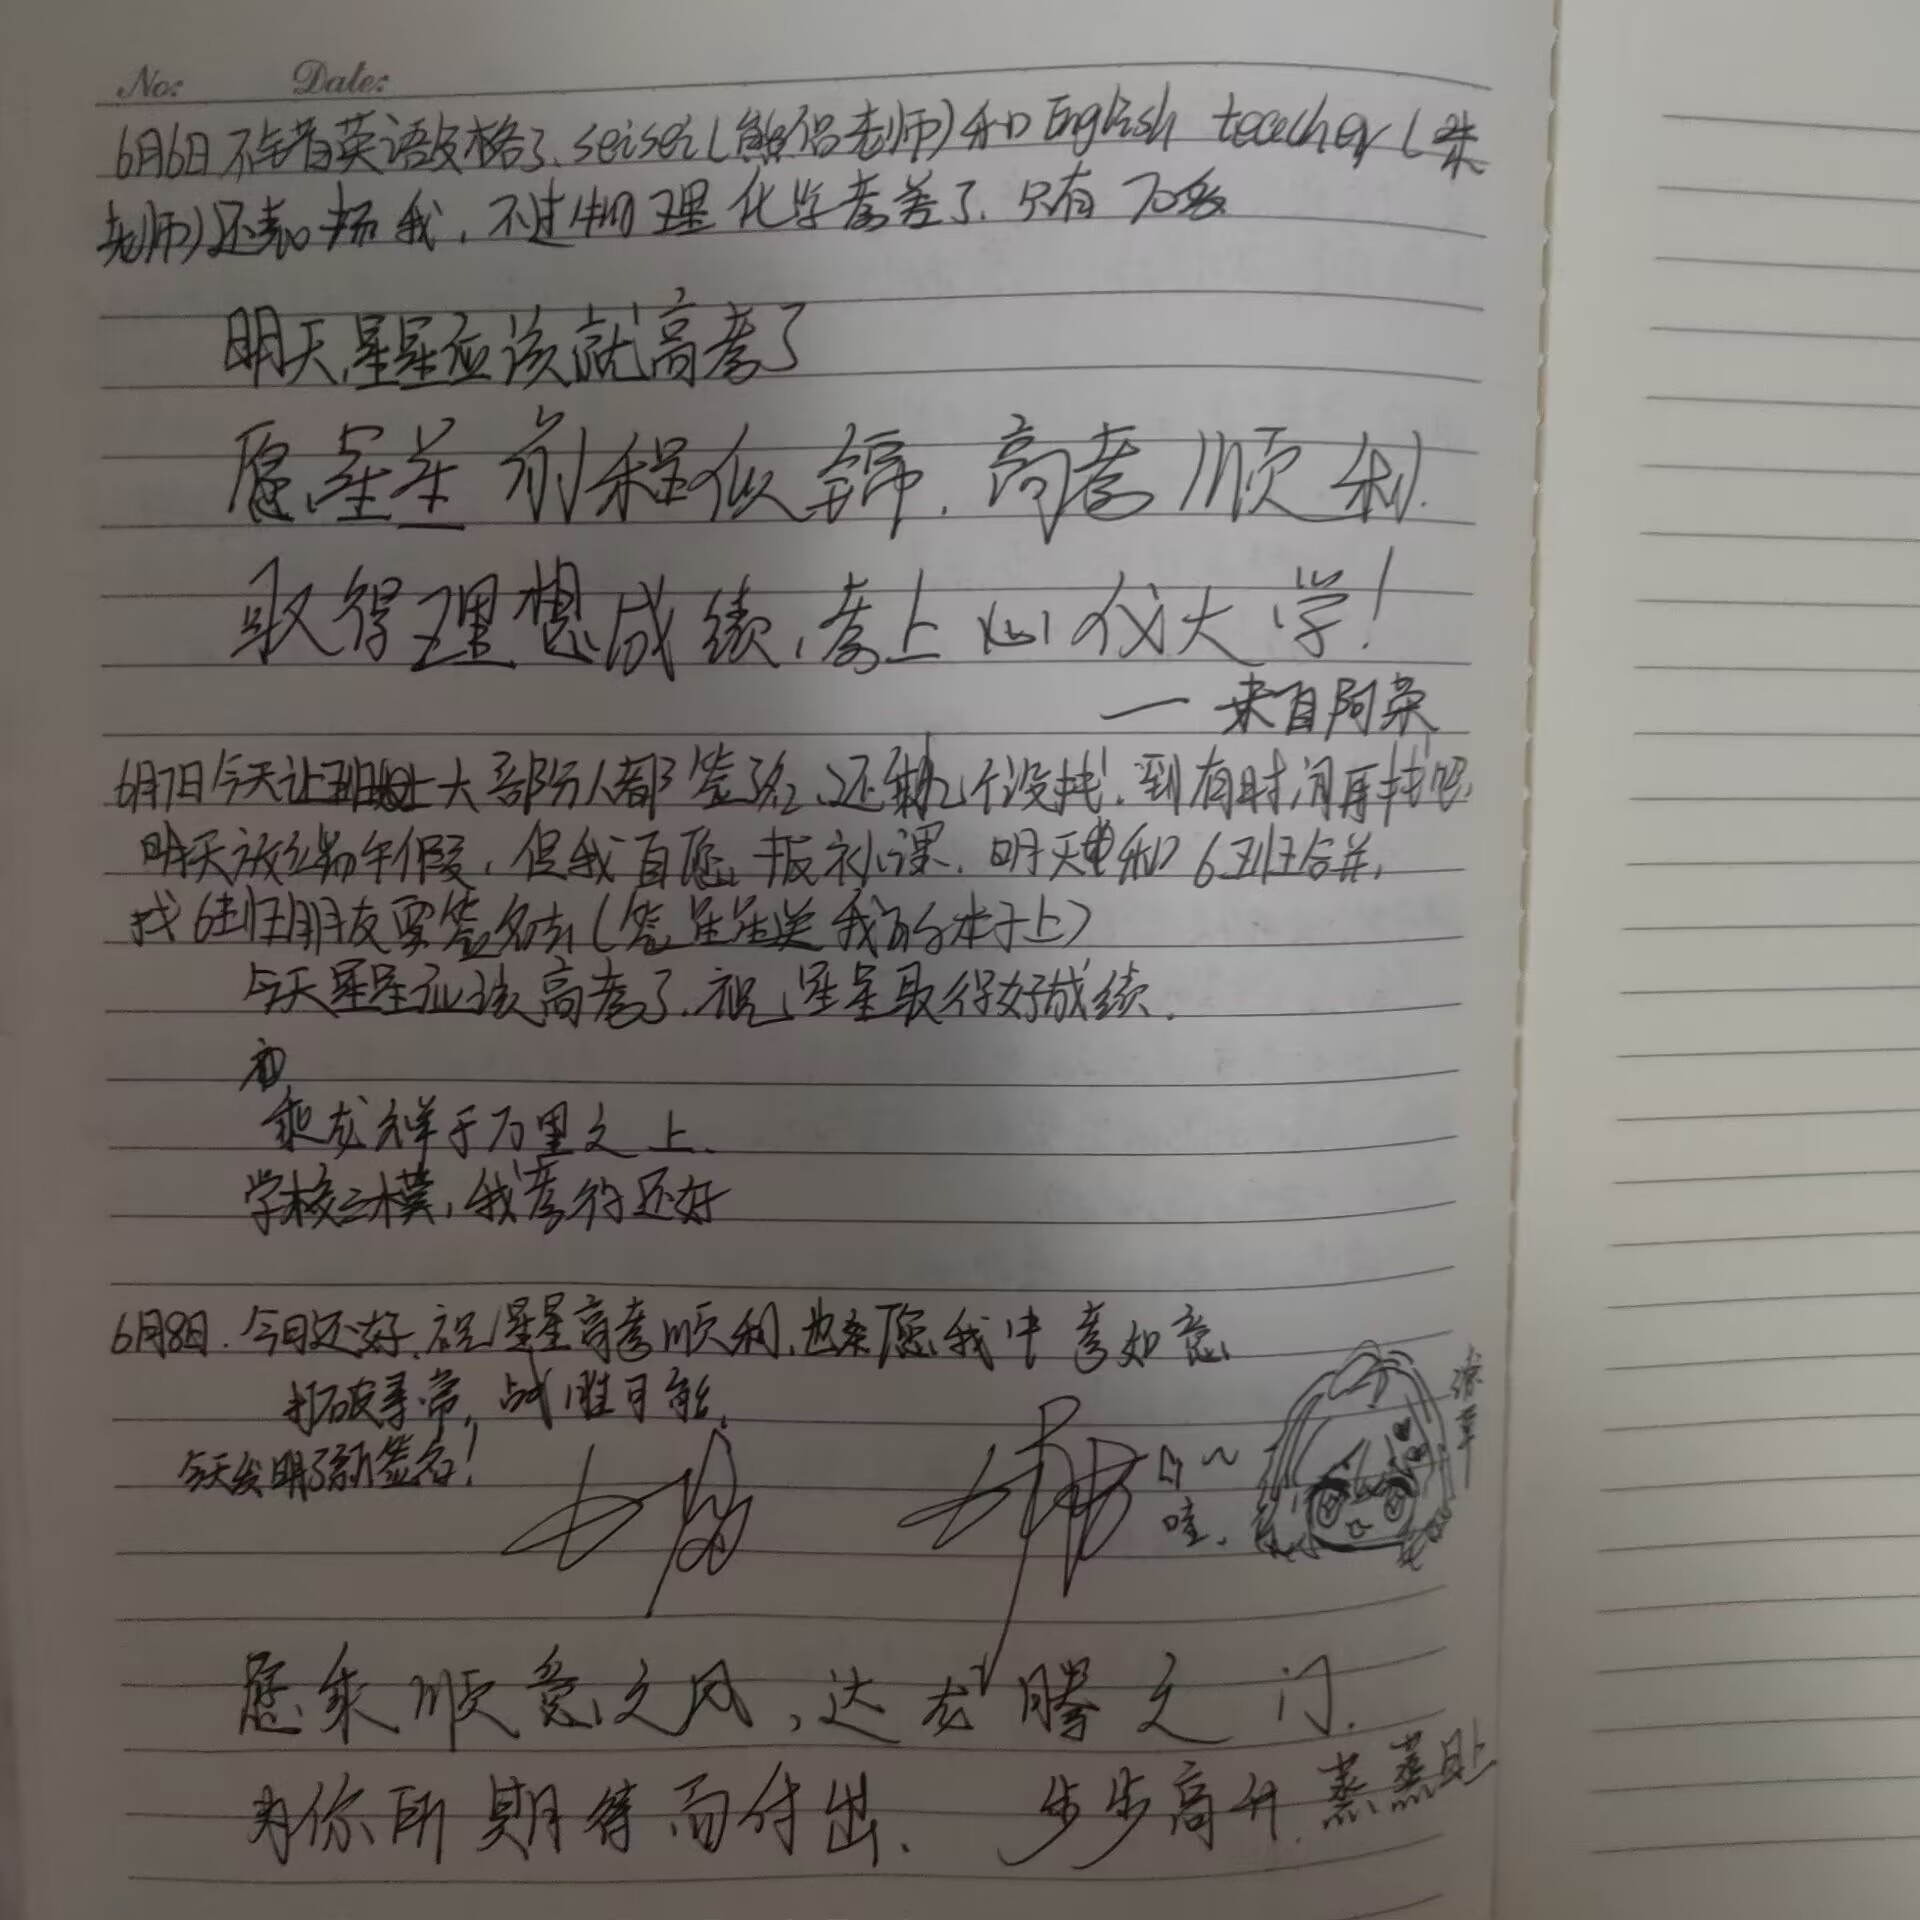 No: Date:
6月6日 不错昔英语及格了、seisei(熊侣老师)和English teacher(朱
老师)还表扬我，不过物理化学考差了. 只有70多
明天星星应该就高考了
愿星星前程似锦. 高考顺利.
取得理想成绩，考上心仪大学！
— 来自阿荣
6月7日 今天让班上大部分人都签了名、还剩几个没找. 到有时间再找吧.
明天放端午假，但我自愿报补课. 明天和6班合并，
找6班朋友要签名去(签星星送我的本子上)
今天星星应该高考了. 祝星星取得好成绩.
和
乘龙祥于万里之上.
学校三模，我考得还好
6月8日. 今日还好. 祝星星高考顺利. 也愿我中考如意.
打破寻常，战胜可能.
今天发明了新签名！
哇.
愿乘顺意之风，达龙腾之门.
为你所期待而付出. 步步高升. 蒸蒸日上